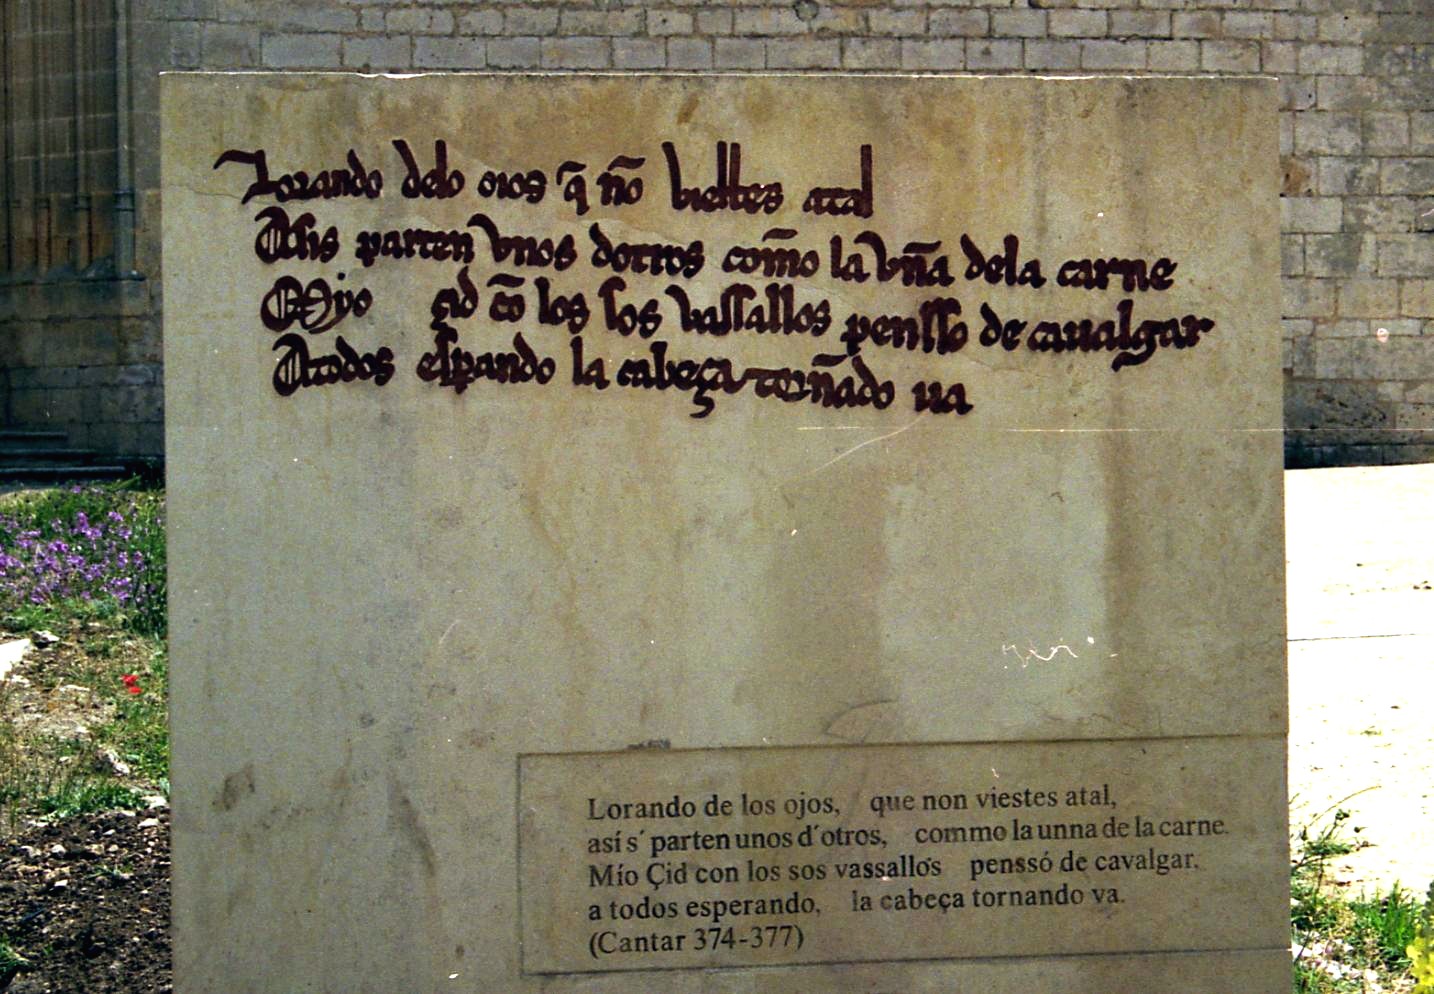 Lorando delo oios q̄ nō viestes atal
Asis parten vnos dotros com̄o la vn̄a dela carne
Myo çid cō los sos vassallos pensso de caualgar
Atodos esꝑando la cabeça torn̄ado ua
Lorando de los ojos, que non viestes atal,
así s' parten unos d'otros, commo la unna de la carne.
Mío Çid con los sos vassallos penssó de cavalgar,
a todos esperando, la cabeça tornando va.
(Cantar 374-377)